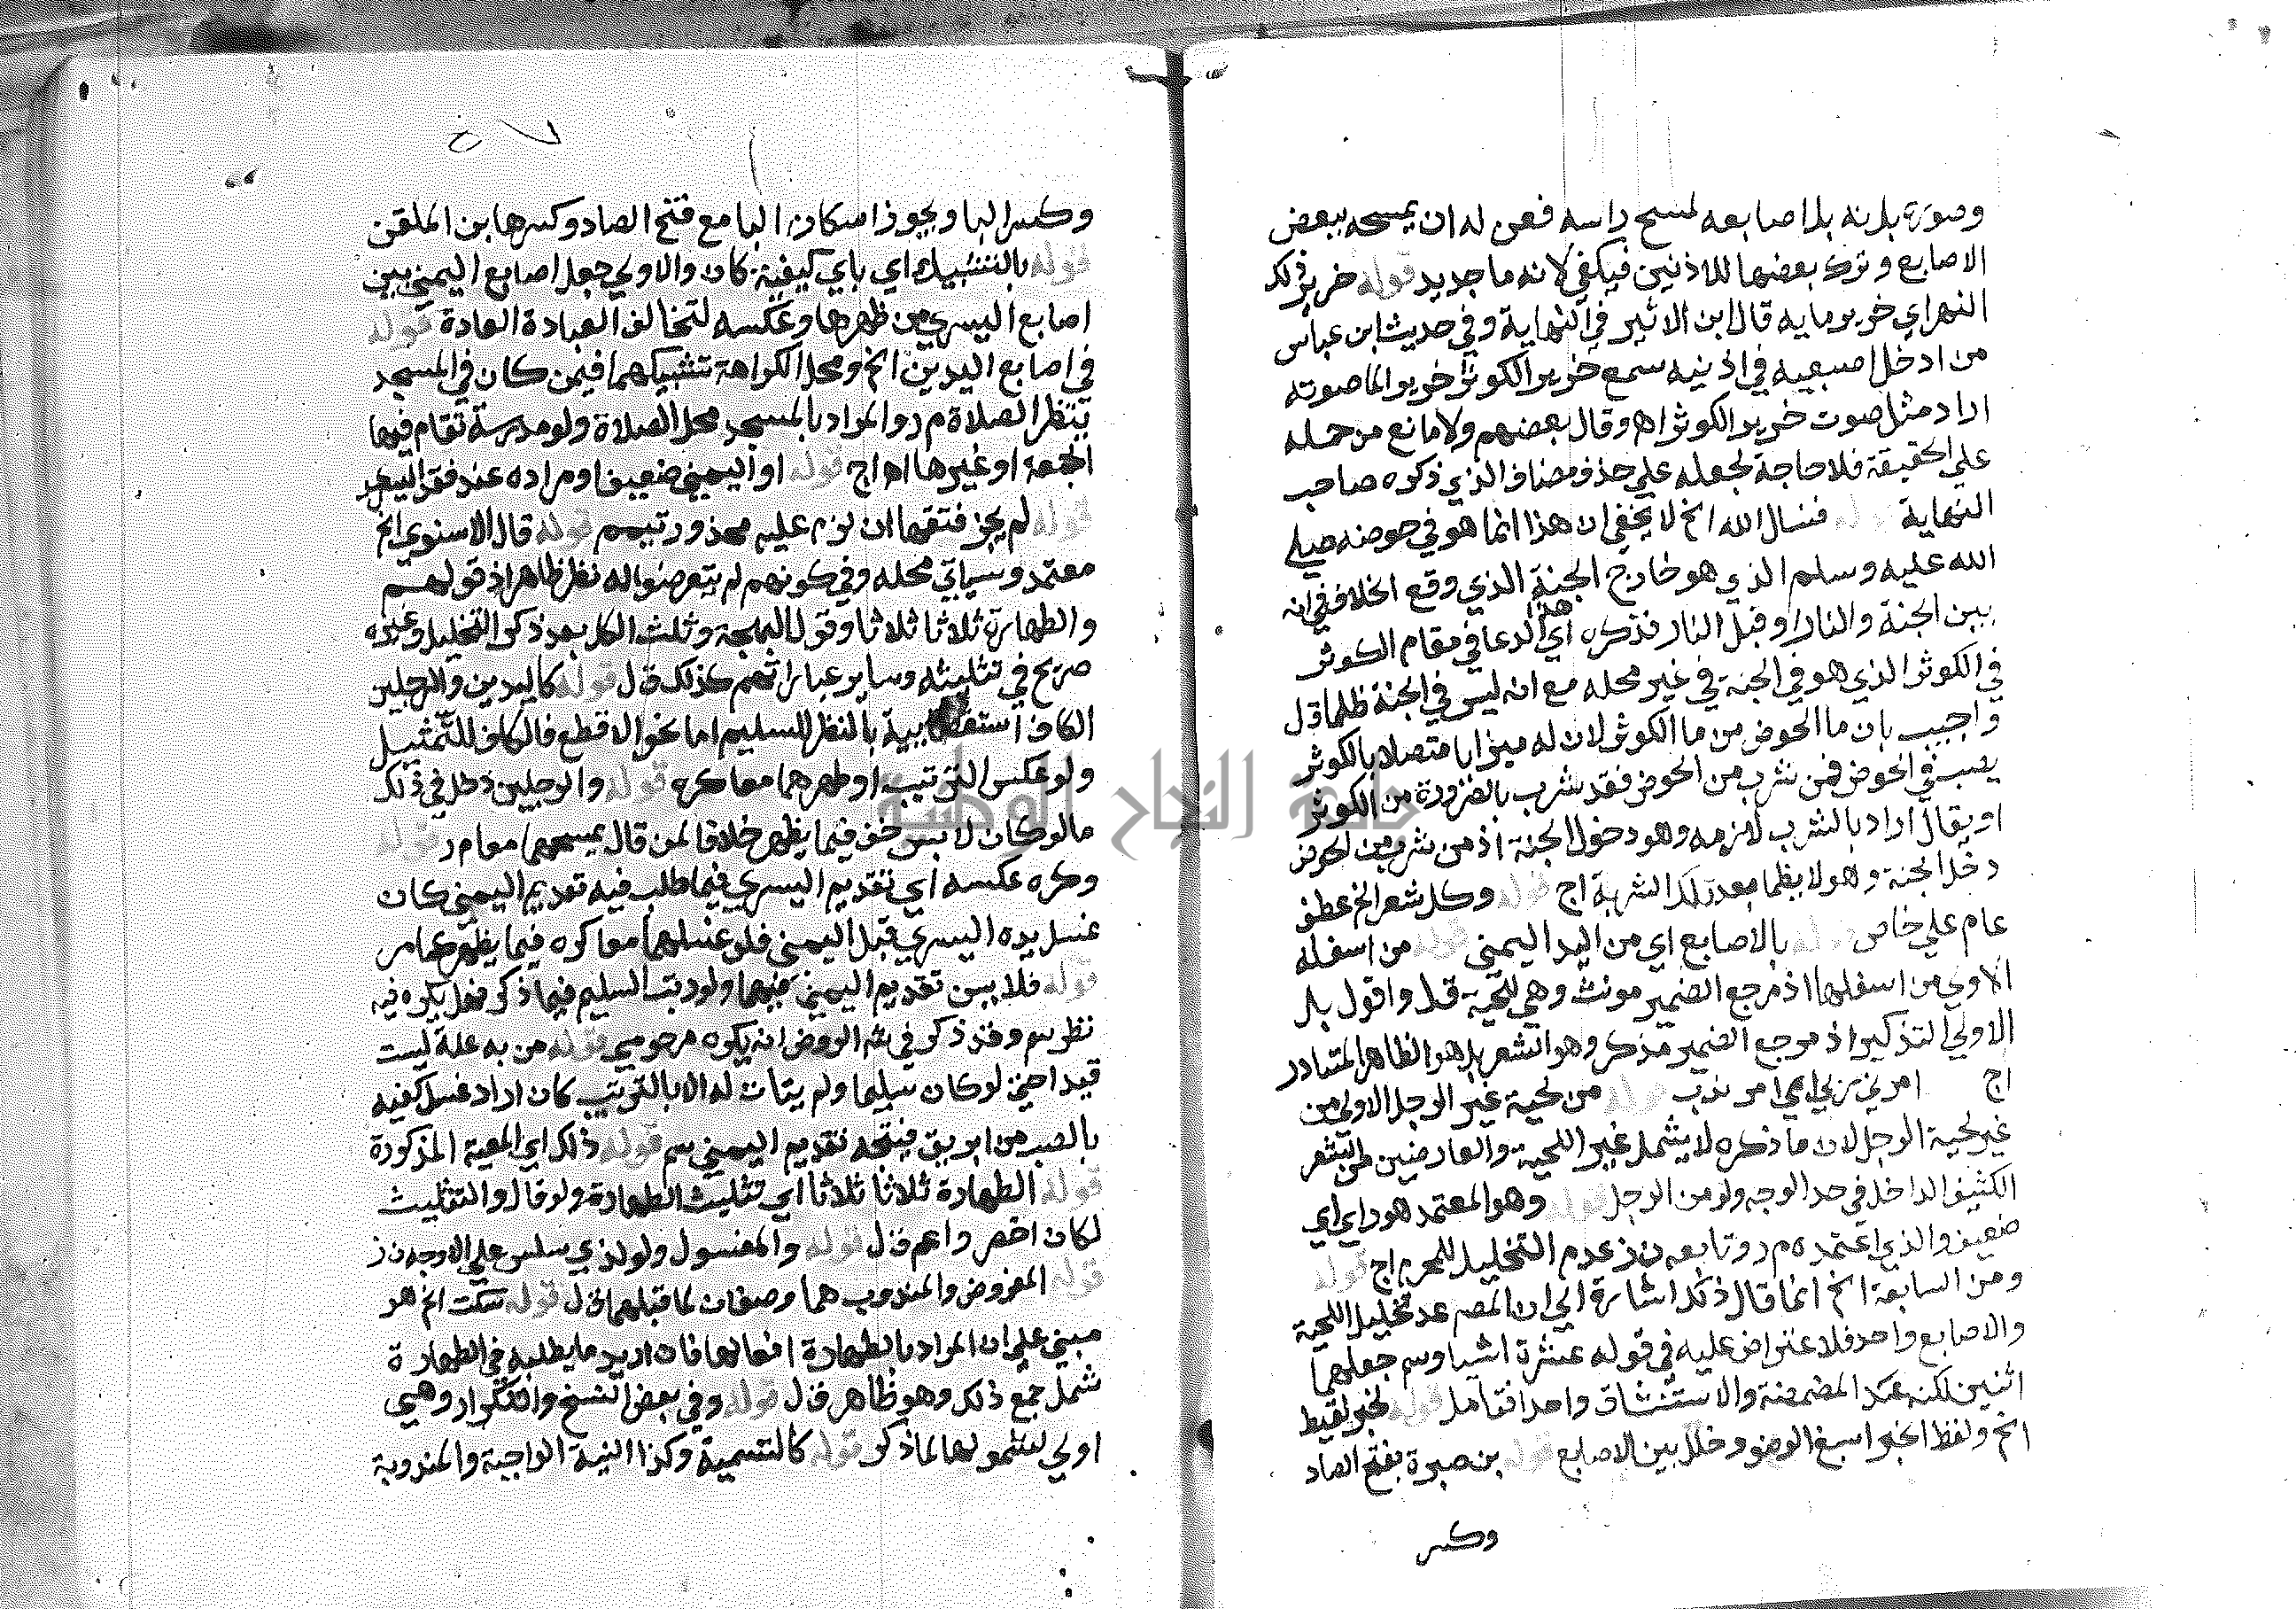 وصورة بلنه بلا اصابعه لمسح راسه فعن له ان يمسحه ببعض
الاصابع وترك بعضها للاذنين فيكفي لانه ما جديد قوله خرير ذلك
النهر اي خرير مايه قال ابن الاثير في النهاية وفي حديث ابن عباس
من ادخل اصبعيه في اذنيه سمع خرير الكوثر خرير الما صوته
اراد مثل صوت خرير الكوثر اه وقال بعضهم ولا مانع من حمله
علي الحقيقة فلا حاجة لجعله علي حذف مضاف الذي ذكره صاحب
النهاية قوله فنسال الله الخ لا يخفي ان هذا انما هو في حوضه صلي
الله عليه وسلم الذي هو خارج الجنة الذي وقع الخلاف في انه
بين الجنة والنار او قبل النار فذكره اي هذا الدعا في مقام الكوثر
في الكوثر الذي هو في الجنة في غير محله مع انه ليس في الجنة ظلما ق ل
واجيب بان ما الحوض من ما الكوثر لان له ميزابا متصلا بالكوثر
يصب في الحوض فمن شرب من الحوض فقد شرب بالضرورة من الكوثر
او يقال اراد بالشرب لازمه وهو دخول الجنة اذ من شرب من الحوض
دخل الجنة وهو لا يظما بعد تلك الشربة اج قوله وكل شعر الخ عطف
عام علي خاص قوله بالاصابع اي من اليد اليمني قوله من اسفله
الاولي من اسفلها اذ مرجع الضمير مونث وهي للحية ق ل واقول بل
الاولي التذكير اذ مرجع الضمير مذكر وهو الشعر بل هو الظاهر المتبادر
اج امرني ربي اي امر ندب قوله من لحية غير الرجل الاولي من
غير لحية الرجل لان ما ذكره لا يشمل غير اللحية والعارضين من الشعر
الكثيف الداخل في حد الوجه ولو من الرجل قوله وهو المعتمد هو راي اي
ضعيف والذي اعتمده م ر وتابعه ن ز عدم التخليل للمحرم اج قوله
ومن السابعة الخ انما قال ذلك اشارة الي ان المص عد تخليل اللحية
والاصابع واحد فلا اعتراض عليه في قوله عشرة اشيا وسم جعلهما
اثنين لكنه عد المضمضة والاستنشاق واحدا فتامل قوله لخبر لقيط
الخ ولفظ الخبر اسبغ الوضو وخلل بين الاصابع قوله بن صبرة بفتح الصاد
وكسر
وكسر البا ويجوز اسكان البا مع فتح الصاد وكسرها بن الملقن
قوله بالتشبيك اي باي كيفية كان والاولي جعل اصابع اليمني بين
اصابع اليسري من ظهرها وعكسه لتخالف العبادة العادة قوله
في اصابع اليدين الخ ومحل الكراهة تشبيكهما فيمن كان في المسجد
ينتظر الصلاة م ر والمراد بالمسجد محل الصلاة ولو مدرسة تقام فيها
الجمعة او غيرها اه اج قوله او اليمني ضعيف او مراده عند فقد اليسري
قوله لم يجز فتقها ان لزم عليه محذور تيمم قوله قال الاسنوي الخ
معتمد وسياتي محله وفي كونهم لم يتعرضوا له نظر ظاهر اذ قولهم
والطهارة ثلاثا ثلاثا وقول البهجة وثلث الكل بعد ذكر التخليل وغيره
صريح في تثليثه وساير عباراتهم كذلك ق ل قوله كاليدين والرجلين
الكاف استقصائية بالنظر للسليم اما نحو الاقطع فالكاف للتمثيل
ولو عكس الترتيب او طهرهما معا كره قوله والرجلين دخل في ذلك
مالو كان لابس خف فيما يظهر خلافا لمن قال يمسحهما معا م ر قوله
وكره عكسه اي تقديم اليسري فيما طلب فيه تقديم اليمني كان
غسل يده اليسري قبل اليمني فلو غسلهما معا كره فيما يظهر عامر
قوله فلا يسن تقديم اليمني منهما ولو رتب السليم فيما ذكر فهل يكره فيه
نظر سم وقد ذكر في شه الروض انه يكره مرحومي قوله من به علة ليست
قيدا حتي لو كان سليما ولم يتات له الا بالترتيب كان اراد غسل كفيه
بالصب من ابريق فيتجه تقديم اليمني سم قوله ذلك اي المعية المذكورة
قوله الطهارة ثلاثا ثلاثا اي تثليث الطهارة ولو قال والتثليث
لكان اخصر واعم ق ل قوله والمغسول ولو لذي سلس علي الاوجه ن ز
قوله المفروض والمندوب هما وصفان لما قبلهما ق ل قوله سكت الخ هو
مبني علي ان المراد بالطهارة افعالها فان اريد ما يطلب في الطهارة
شمل جمع ذلك وهو ظاهر ق ل قوله وفي بعض النسخ والتكرار وهي
اولي لشمولها لما ذكر قوله كالتسمية وكذا النية الواجبة والمندوبة
جامعة النجاح الوطنية